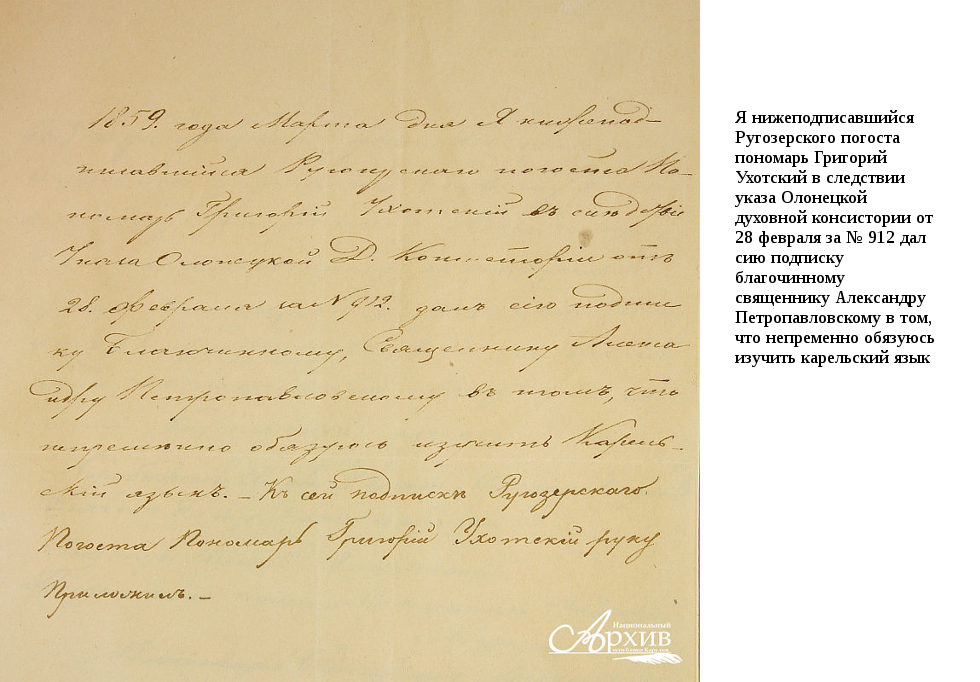 1859. года Марта дня Я нижепод-
писавшійся Ругозерскаго погоста По-
номарь Григорій Ухотскій въ слѣдствіе
Указа Олонецкой Д. Консисторіи отъ
28. Февраля за № 912. далъ сію подпис
ку Благочинному, Священнику Алекса
ндру Петропавловскому въ томъ, что
непремѣнно обязуюсь изучить Карель-
скій языкъ. – Къ сей подпискѣ Ругозерскаго
Погоста Пономарь Григорій Ухотскій руку
Приложилъ. –
Национальный
Архив
республики Карелия
Я нижеподписавшийся
Ругозерского погоста
пономарь Григорий
Ухотский в следствии
указа Олонецкой
духовной консистории от
28 февраля за № 912 дал
сию подписку
благочинному
священнику Александру
Петропавловскому в том,
что непременно обязуюсь
изучить карельский язык